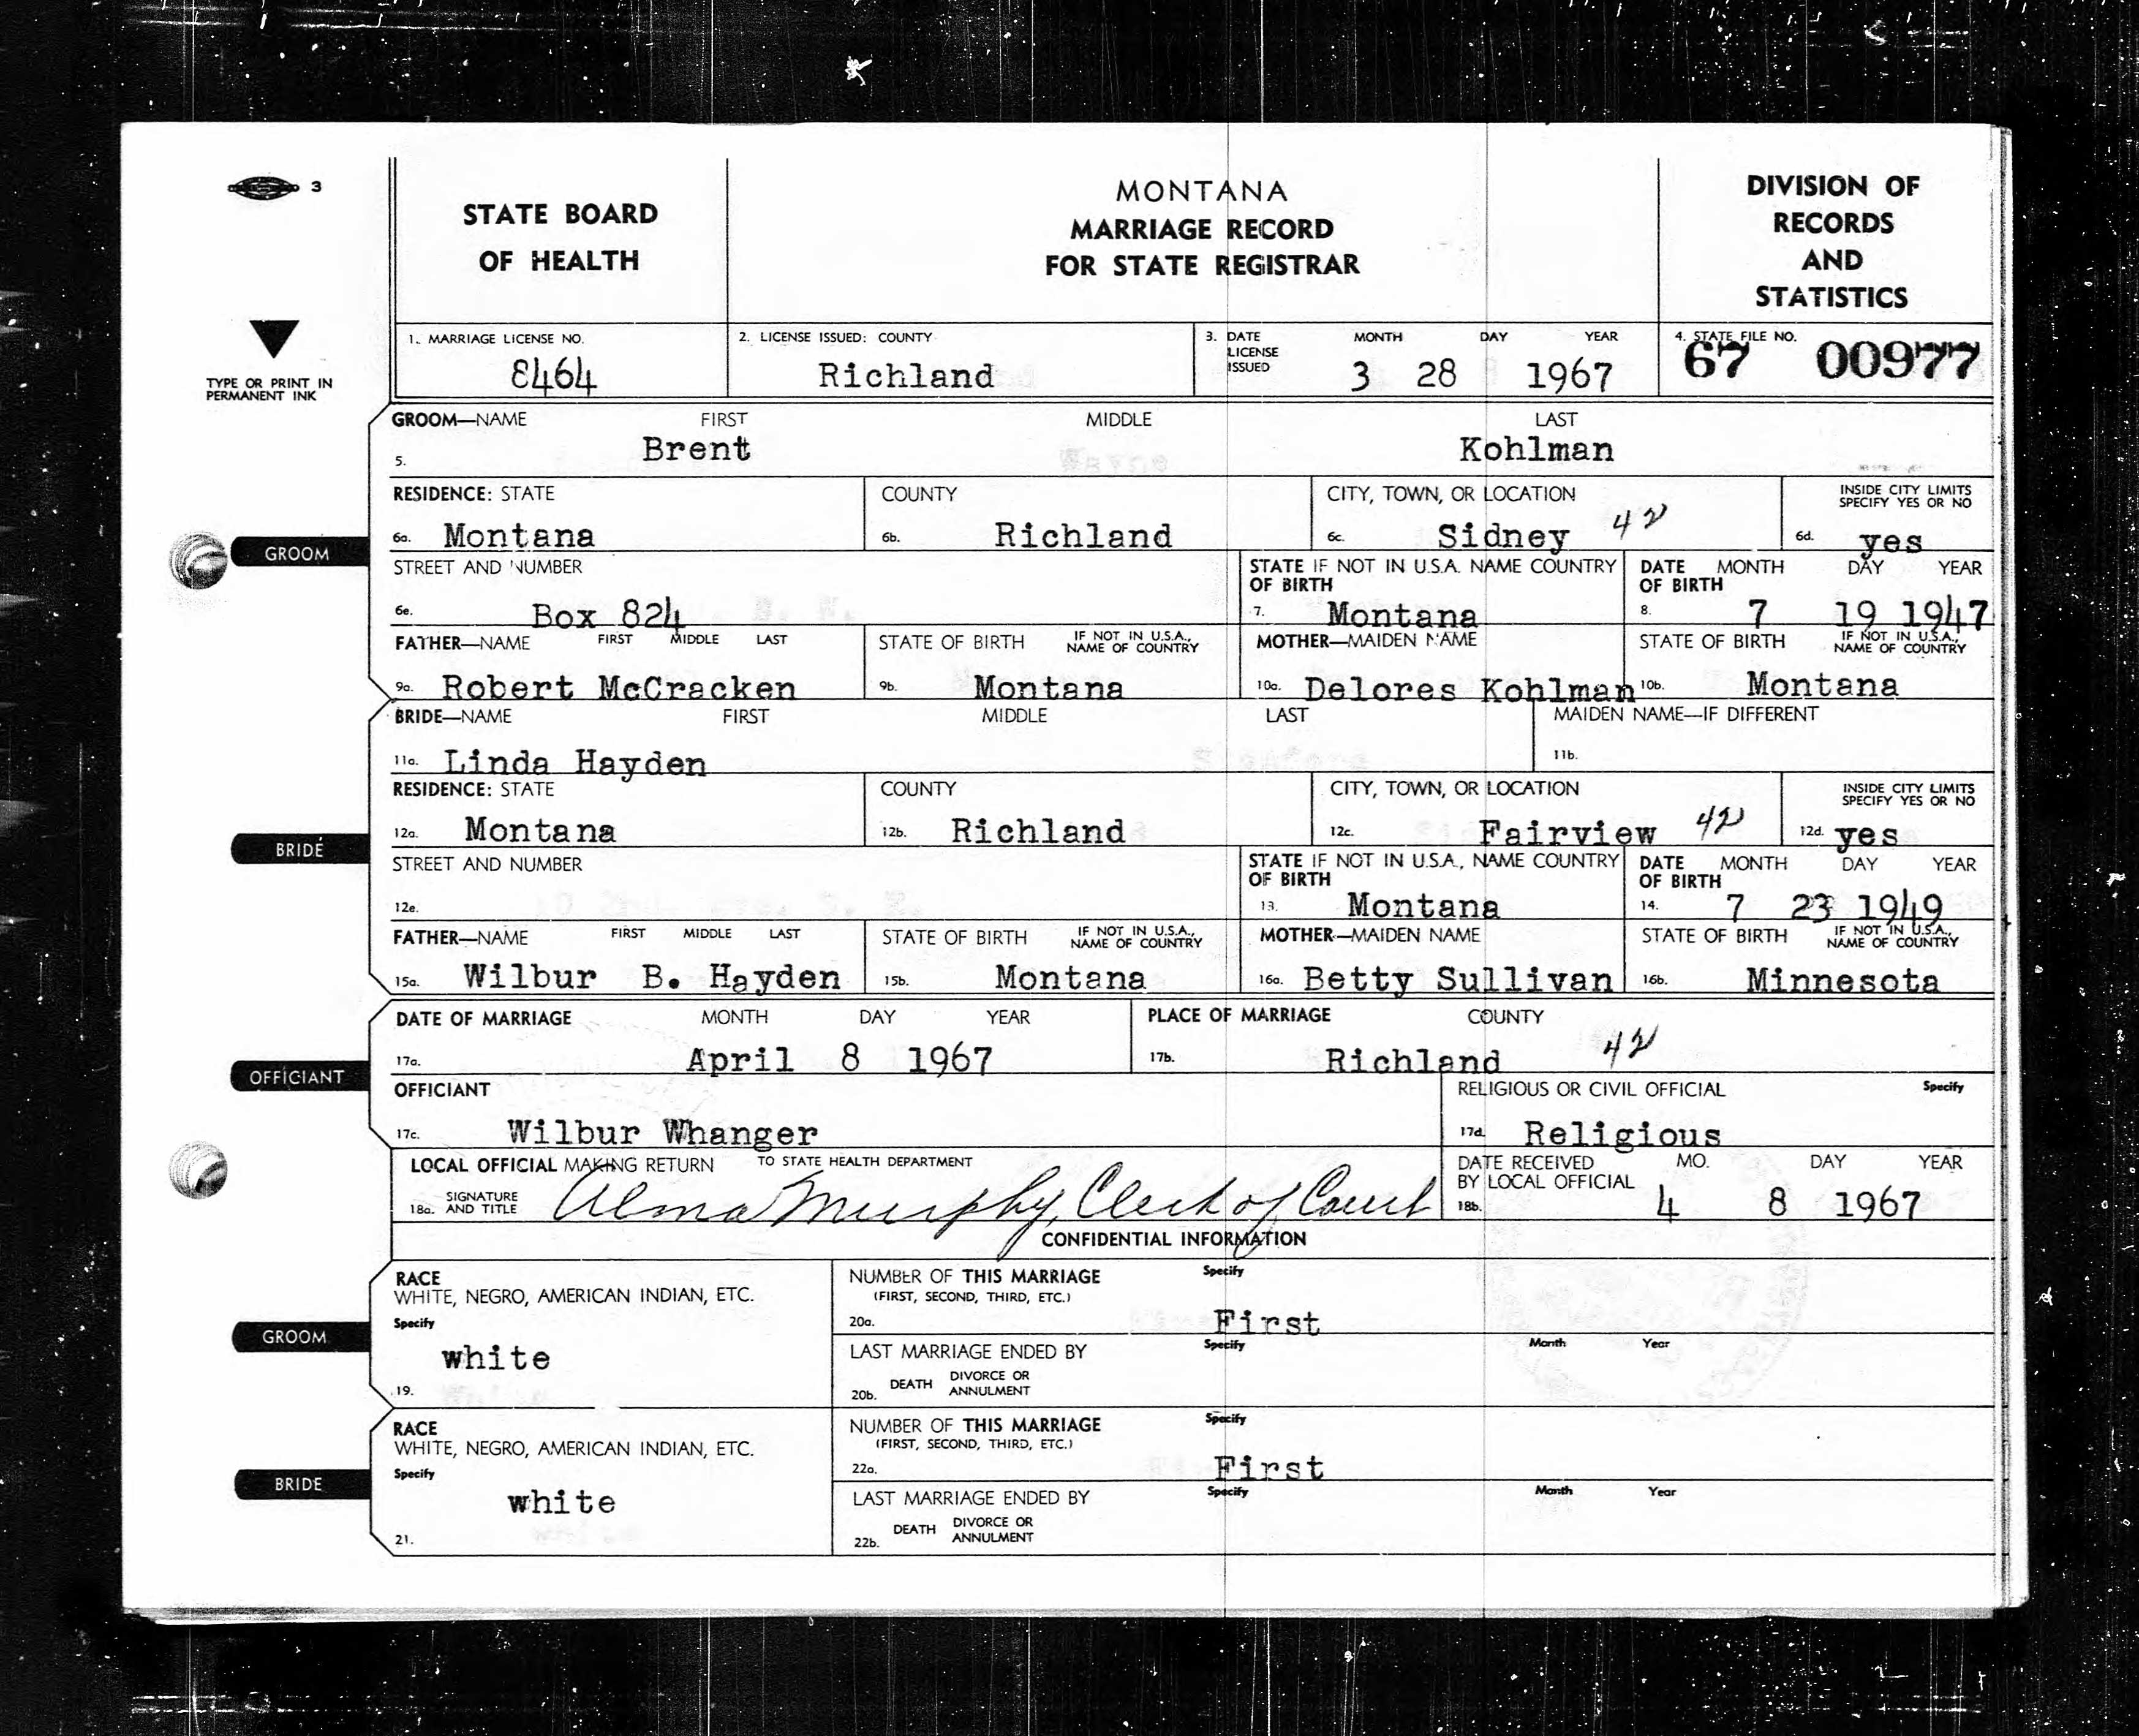 3
STATE BOARD
OF HEALTH
MONTANA
MARRIAGE RECORD
FOR STATE REGISTRAR
DIVISION OF
RECORDS
AND
STATISTICS
TYPE OR PRINT IN
PERMANENT INK
1. MARRIAGE LICENSE NO.
8464
2. LICENSE ISSUED: COUNTY
Richland
3. DATE LICENSE ISSUED MONTH DAY YEAR
3 28 1967
4. STATE FILE NO.
67 00977
GROOM
GROOM—NAME FIRST MIDDLE LAST
5. Brent Kohlman
RESIDENCE: STATE
6a. Montana
COUNTY
6b. Richland
CITY, TOWN, OR LOCATION
6c. Sidney 42
INSIDE CITY LIMITS
SPECIFY YES OR NO
6d. yes
STREET AND NUMBER
6e. Box 824
STATE IF NOT IN U.S.A. NAME COUNTRY
OF BIRTH
7. Montana
DATE MONTH DAY YEAR
OF BIRTH
8. 7 19 1947
FATHER—NAME FIRST MIDDLE LAST
9a. Robert McCracken
STATE OF BIRTH IF NOT IN U.S.A., NAME OF COUNTRY
9b. Montana
MOTHER—MAIDEN NAME
10a. Delores Kohlman
STATE OF BIRTH IF NOT IN U.S.A., NAME OF COUNTRY
10b. Montana
BRIDE
BRIDE—NAME FIRST MIDDLE LAST
11a. Linda Hayden
MAIDEN NAME—IF DIFFERENT
11b.
RESIDENCE: STATE
12a. Montana
COUNTY
12b. Richland
CITY, TOWN, OR LOCATION
12c. Fairview 42
INSIDE CITY LIMITS
SPECIFY YES OR NO
12d. yes
STREET AND NUMBER
12e.
STATE IF NOT IN U.S.A., NAME COUNTRY
OF BIRTH
13. Montana
DATE MONTH DAY YEAR
OF BIRTH
14. 7 23 1949
FATHER—NAME FIRST MIDDLE LAST
15a. Wilbur B. Hayden
STATE OF BIRTH IF NOT IN U.S.A., NAME OF COUNTRY
15b. Montana
MOTHER—MAIDEN NAME
16a. Betty Sullivan
STATE OF BIRTH IF NOT IN U.S.A., NAME OF COUNTRY
16b. Minnesota
OFFICIANT
DATE OF MARRIAGE MONTH DAY YEAR
17a. April 8 1967
PLACE OF MARRIAGE COUNTY
17b. Richland 42
OFFICIANT
17c. Wilbur Whanger
RELIGIOUS OR CIVIL OFFICIAL Specify
17d. Religious
LOCAL OFFICIAL MAKING RETURN TO STATE HEALTH DEPARTMENT
SIGNATURE
18a. AND TITLE Alma Murphy, Clerk of Court
DATE RECEIVED MO. DAY YEAR
BY LOCAL OFFICIAL
18b. 4 8 1967
CONFIDENTIAL INFORMATION
GROOM
RACE
WHITE, NEGRO, AMERICAN INDIAN, ETC.
Specify
white
19.
NUMBER OF THIS MARRIAGE Specify
(FIRST, SECOND, THIRD, ETC.)
20a. First
LAST MARRIAGE ENDED BY Specify Month Year
20b. DEATH DIVORCE OR ANNULMENT
BRIDE
RACE
WHITE, NEGRO, AMERICAN INDIAN, ETC.
Specify
white
21.
NUMBER OF THIS MARRIAGE Specify
(FIRST, SECOND, THIRD, ETC.)
22a. First
LAST MARRIAGE ENDED BY Specify Month Year
22b. DEATH DIVORCE OR ANNULMENT